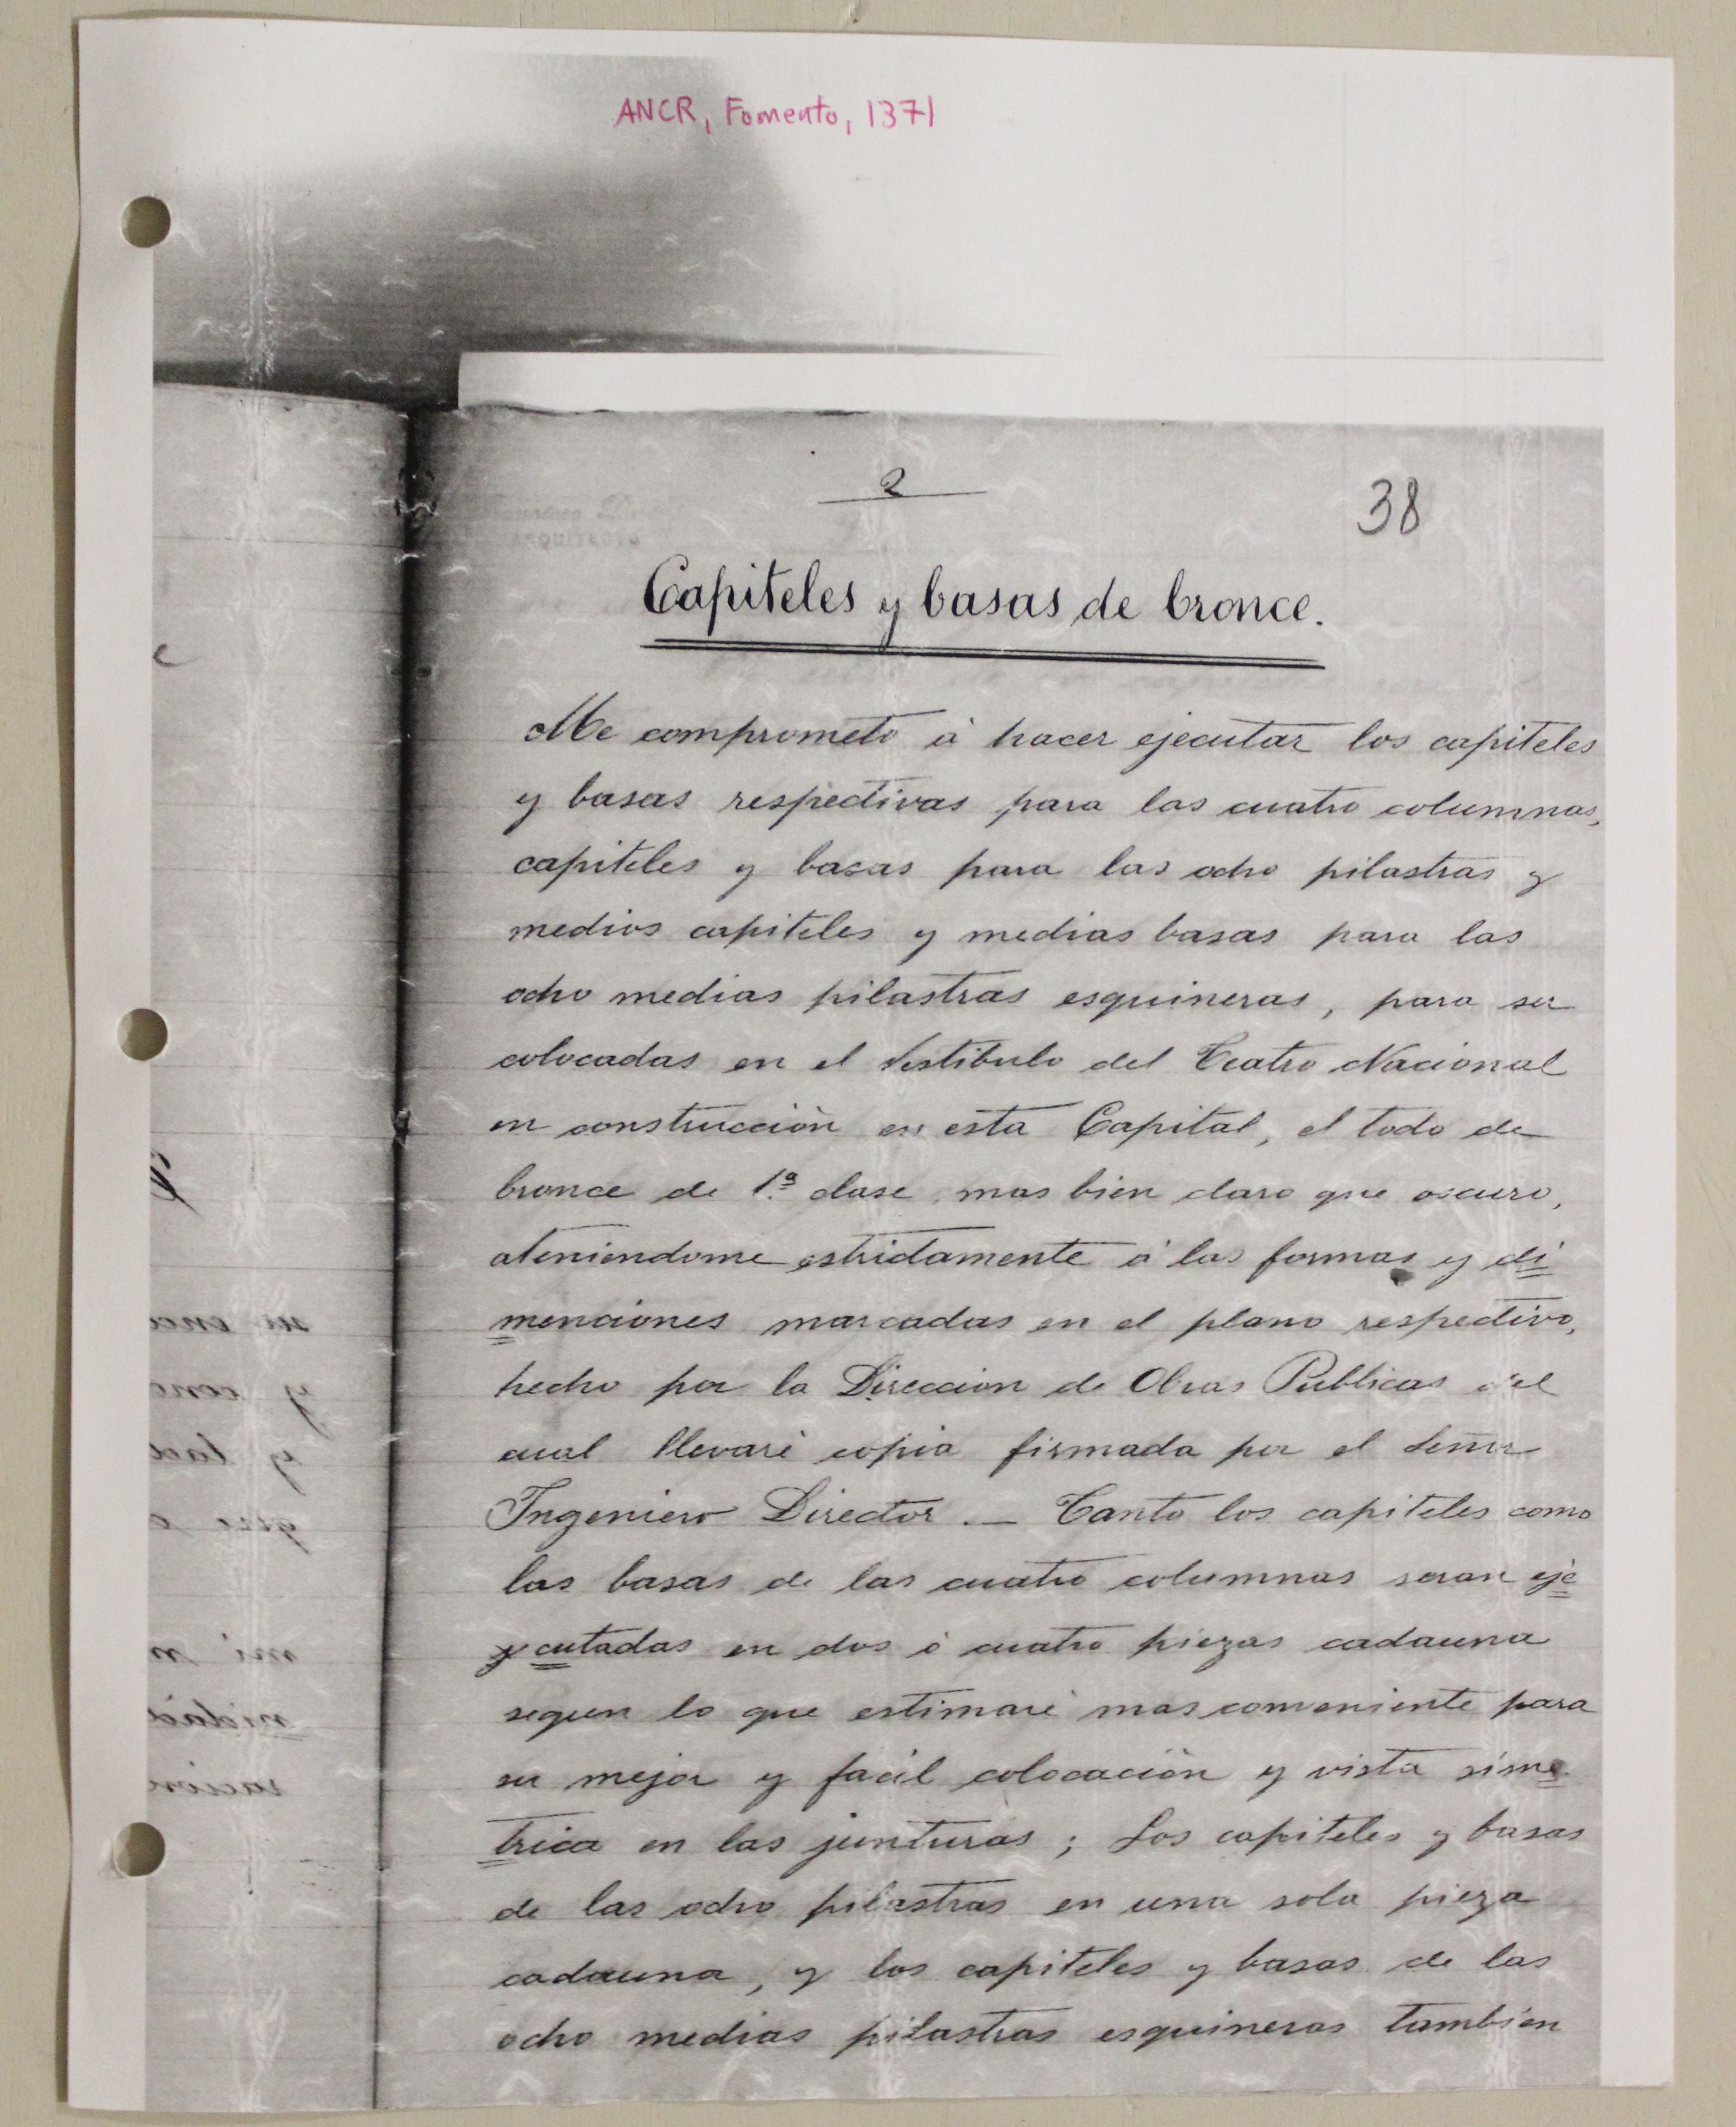 ANCR, Fomento, 1371
2
38
ARQUITECTO
Capiteles y basas de bronce.
Me comprometo à hacer ejecutar los capiteles
y basas respectivas para las cuatro columnas,
capiteles y basas para las ocho pilastras y
medios capiteles y medias basas para las
ocho medias pilastras esquineras, para ser
colocadas en el Vestibulo del Teatro Nacional
en construcciòn en esta Capital, el todo de
bronce de 1.ª clase, mas bien claro que oscuro,
ateniendome estrictamente à las formas y di
menciones marcadas en el plano respectivo,
hecho por la Direccion de Obras Publicas del
cual llevarè copia firmada por el Señor
Ingeniero Director. — Tanto los capiteles como
las basas de las cuatro columnas seran eje
cutadas en dos ò cuatro piezas cadauna
segun lo que estimarè mas conveniente para
su mejor y facil colocaciòn y vista sime
trica en las junturas; Los capiteles y basas
de las ocho pilastras en una sola pieza
cadauna, y los capiteles y basas de las
ocho medias pilastras esquineras tambien